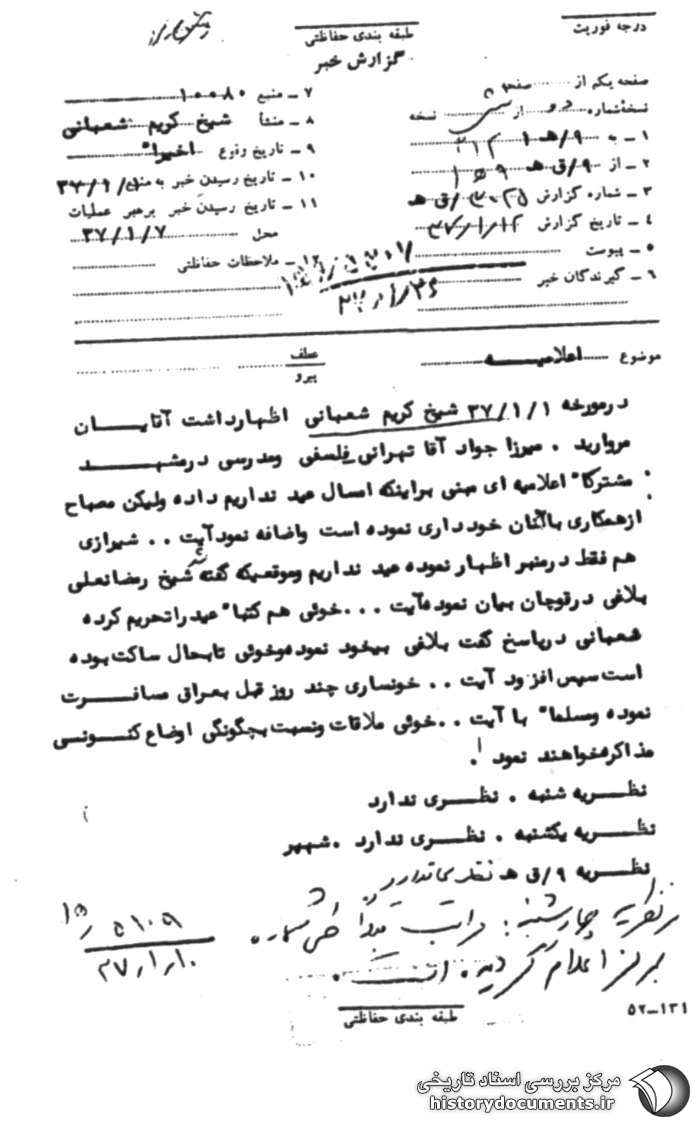 درجه فوریت
طبقه بندی حفاظتی
گزارش خبر
صفحه یکم از صفحه
نسخهٔ شماره دو از شش نسخه
۱ ـ به ۹/هـ ۱ ۳۱۲
۲ ـ از ۹/ق هـ
۳ ـ شماره گزارش /ق هـ
۴ ـ تاریخ گزارش
۵ ـ پیوست
۶ ـ گیرندگان خبر
۷ ـ منبع ۱۰۰۸۰
۸ ـ منشأ شیخ کریم شعبانی
۹ ـ تاریخ وقوع اخیرا"
۱۰ ـ تاریخ رسیدن خبر به منبع ۳۷/۱/۱
۱۱ ـ تاریخ رسیدن خبر برهبر عملیات
محل ۳۷/۱/۷
۱۲ ـ ملاحظات حفاظتی
موضوع اعلامیـــه
عطف
پیرو
درمورخه ۳۷/۱/۱ شیخ کریم شعبانی اظهارداشت آقایـــان
مروارید . میرزا جواد آقا تهرانی فلسفی ومدرسی درمشهـــد
مشترکا" اعلامیه ای مبنی براینکه امسال عید نداریم داده ولیکن مصباح
ازهمکاری باآنان خودداری نموده است واضافه نمود آیت . . شیرازی
هم فقط درمنبر اظهار نموده عید نداریم وموقعیکه گفته شد شیخ رمضانعلی
بلاغی درقوچان بیان نموده آیت . . . خوئی هم کتبا" عید را تحریم کرده
شعبانی درپاسخ گفت بلاغی بیخود نموده وخوئی تابحال ساکت بوده
است سپس افزود آیت . . خونساری چند روز قبل بعراق مسافـــرت
نموده ومسلما" با آیت . . خوئی ملاقات ونسبت بچگونگی اوضاع کنـــونی
مذاکره خواهند نمود .
نظـــریه شنبه . نظـــری ندارد
نظـــریه یکشنبه . نظـــری ندارد . شهپر
نظـــریه ۹/ق هـ نظری ندارد
نظریه چهارشنبه : مراتب قبلاً طی شماره
۵۱۰۹
۳۷/۱/۱۰
بمرکز اعلام گردیده است .
طبقه بندی حفاظتی
۵۲ـ۱۳۱
مرکز بررسی اسناد تاریخی
historydocuments.ir